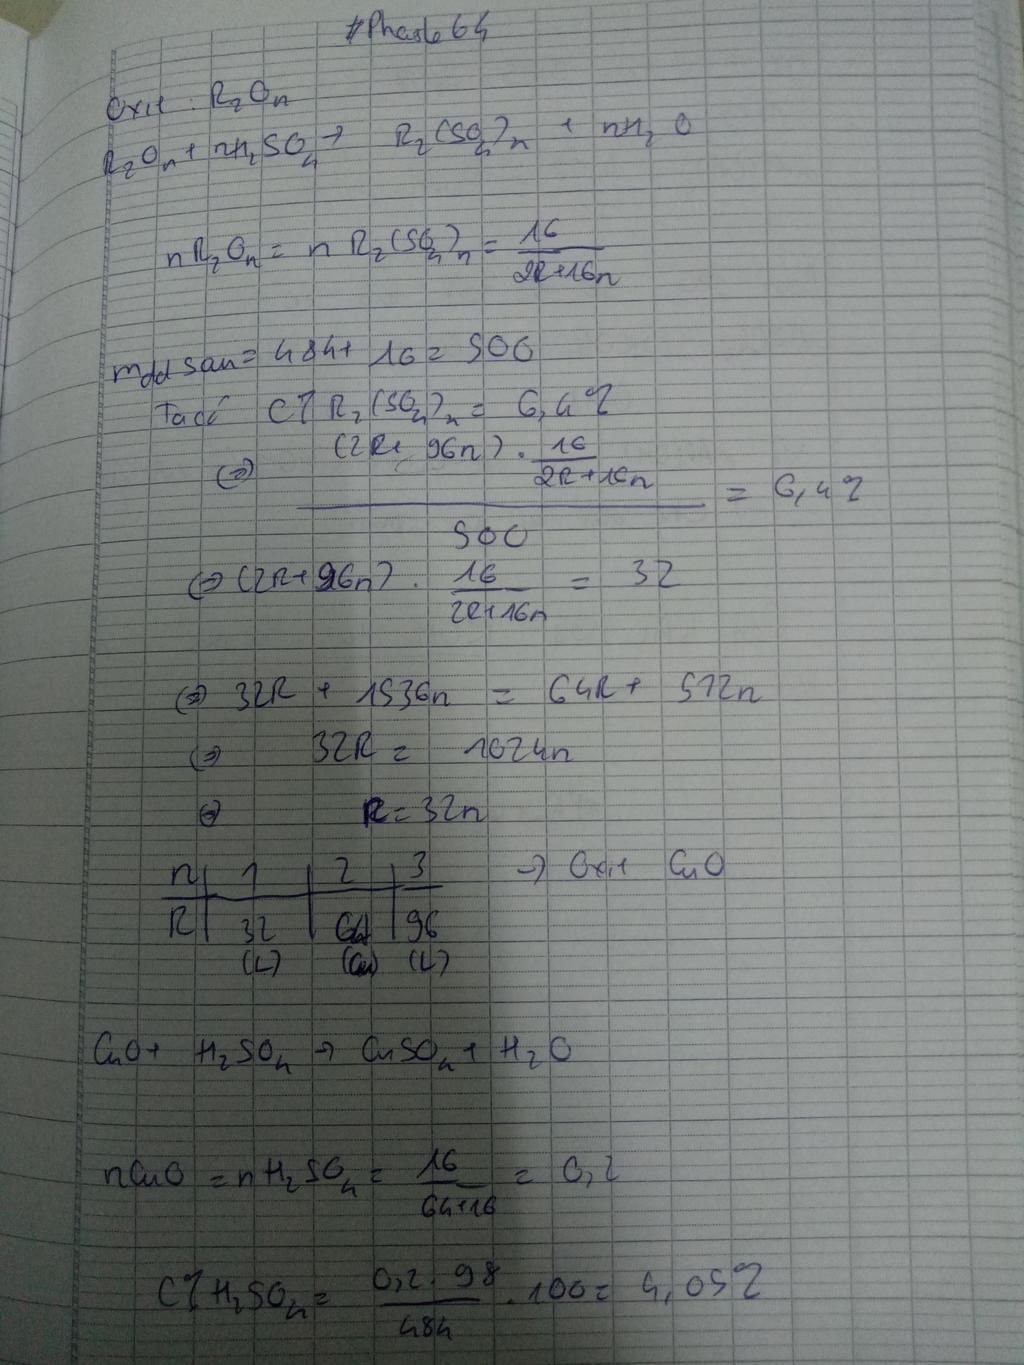 #Phasle64
Oxit : R₂Oₙ
R₂Oₙ + nH₂SO₄ → R₂(SO₄)ₙ + nH₂O
nR₂Oₙ = n R₂(SO₄)ₙ = 16/(2R+16n)
mdd sau = 484 + 16 = 500
Ta có C% R₂(SO₄)ₙ = 6,4%
⇔ ((2R + 96n) . 16/(2R+16n))/500 = 6,4%
⇔ (2R+96n) . 16/(2R+16n) = 32
⇔ 32R + 1536n = 64R + 512n
⇔ 32R = 1024n
⇔ R = 32n
n | 1 | 2 | 3 → Oxit CuO
R | 32 | 64 | 96
(L) (Cu) (L)
CuO + H₂SO₄ → CuSO₄ + H₂O
nCuO = nH₂SO₄ = 16/(64+16) = 0,2
C% H₂SO₄ = (0,2 . 98)/484 . 100 = 4,05%